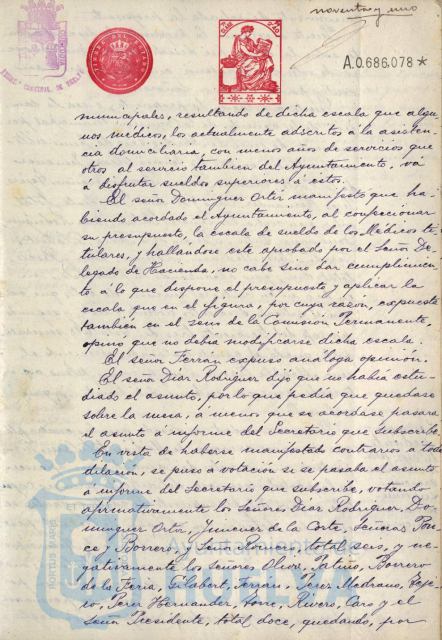 noventa y uno
A.0.686.078*
municipales, resultando de dicha escala que algu-
nos médicos, los actualmente adscritos á la asisten-
cia domiciliaria, con menos años de servicios que
otros al servicio tambien del Ayuntamiento, vá
á disfrutar sueldos superiores á estos.
El señor Dominguez Ortiz manifestó que ha-
biendo acordado el Ayuntamiento, al confeccionar
su presupuesto, la escala de sueldo de los Médicos ti-
tulares, y hallándose este aprobado por el Señor De-
legado de Hacienda, no cabe sino dar cumplimien-
to á lo que dispone el presupuesto y aplicar la
escala que en el figura, por cuya razón, expuesta
tambien en el seno de la Comisión Permanente,
opinó que no debia modificarse dicha escala.
El señor Terrán expuso análoga opinión.
El señor Diaz Rodriguez dijo que no habia estu-
diado el asunto, por lo que pedia que quedase
sobre la mesa, á menos que se acordase pasara
el asunto á informe del Secretario que subscribe.
En vista de haberse manifestado contrarios a toda
dilación, se puso á votación si se pasaba el asunto
á informe del Secretario que subscribe, votando
afirmativamente los Señores Diaz Rodriguez, Do-
minguez Ortiz, Jimenez de la Corte, Señoras Pon-
ce y Borrero y Señor total seis, y ne-
gativamente los Señores Oliva, Borrero
de la Feria, Terrán, Perez Medrano,
Perez Hernandez, Rivero, Caro y el
Señor Presidente, total doce, quedando, por
Ayuntamiento de
HUELVA
PORTUS MARIS ET